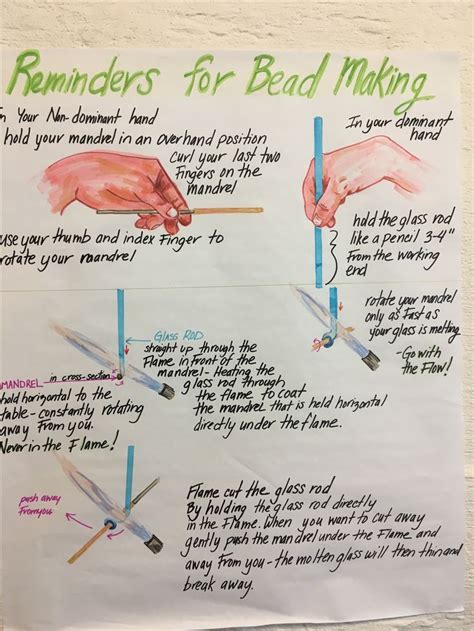 Reminders for Bead Making
In Your Non-dominant hand
hold your mandrel in an overhand position
Curl your last two
Fingers on the
mandrel
use your thumb and index Finger to
rotate your mandrel
In your dominant
hand
hold the glass rod
like a pencil 3-4"
From the working
end
GLASS ROD
straight up through the
Flame in front of the
mandrel - Heating the
glass rod through
the flame to coat
the mandrel that is held horizontal
directly under the flame.
MANDREL in cross-section
hold horizontal to the
table - constantly rotating
away From you.
Never in the Flame!
rotate your mandrel
only as Fast as
your glass is melting
- Go with
the Flow!
push away
From you
Flame cut the glass rod
By holding the glass rod directly
in the Flame. When you want to cut away
gently push the mandrel under the Flame and
away From you - the molten glass will then thin and
break away.